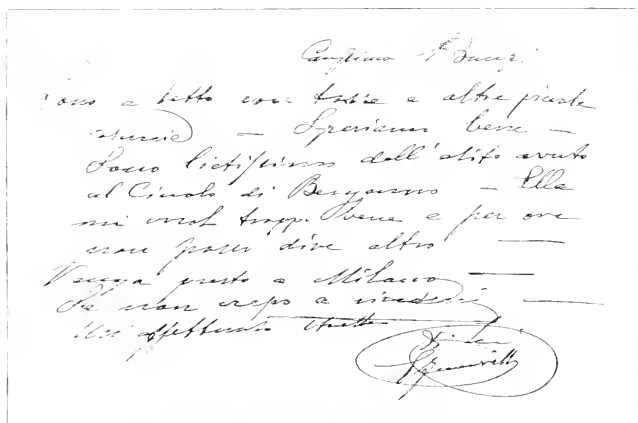 Carissimo
Sono a letto con tosse e altre piccole
— Speriamo bene —
Sono lietissimo dell'esito avuto
al Circolo di Bergamo — Ella
mi vuol troppo bene e per ora
non posso dire altro —
Venga presto a Milano —
Se non crepo a rivederci —
affettuosa stretta